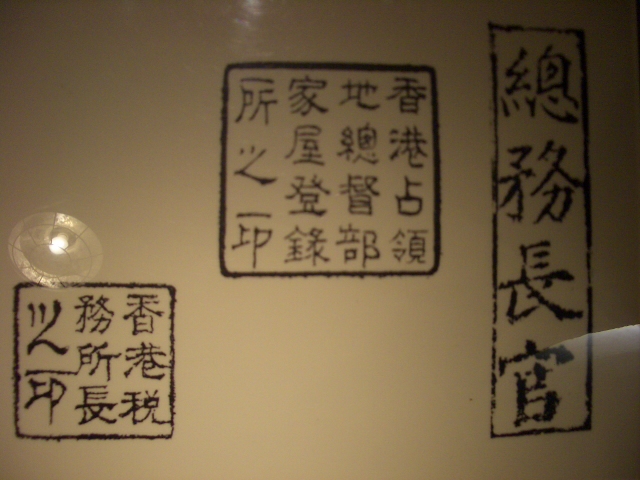 總務長官
香港占領
地總督部
家屋登錄
所之印
香港税
務所長
之印